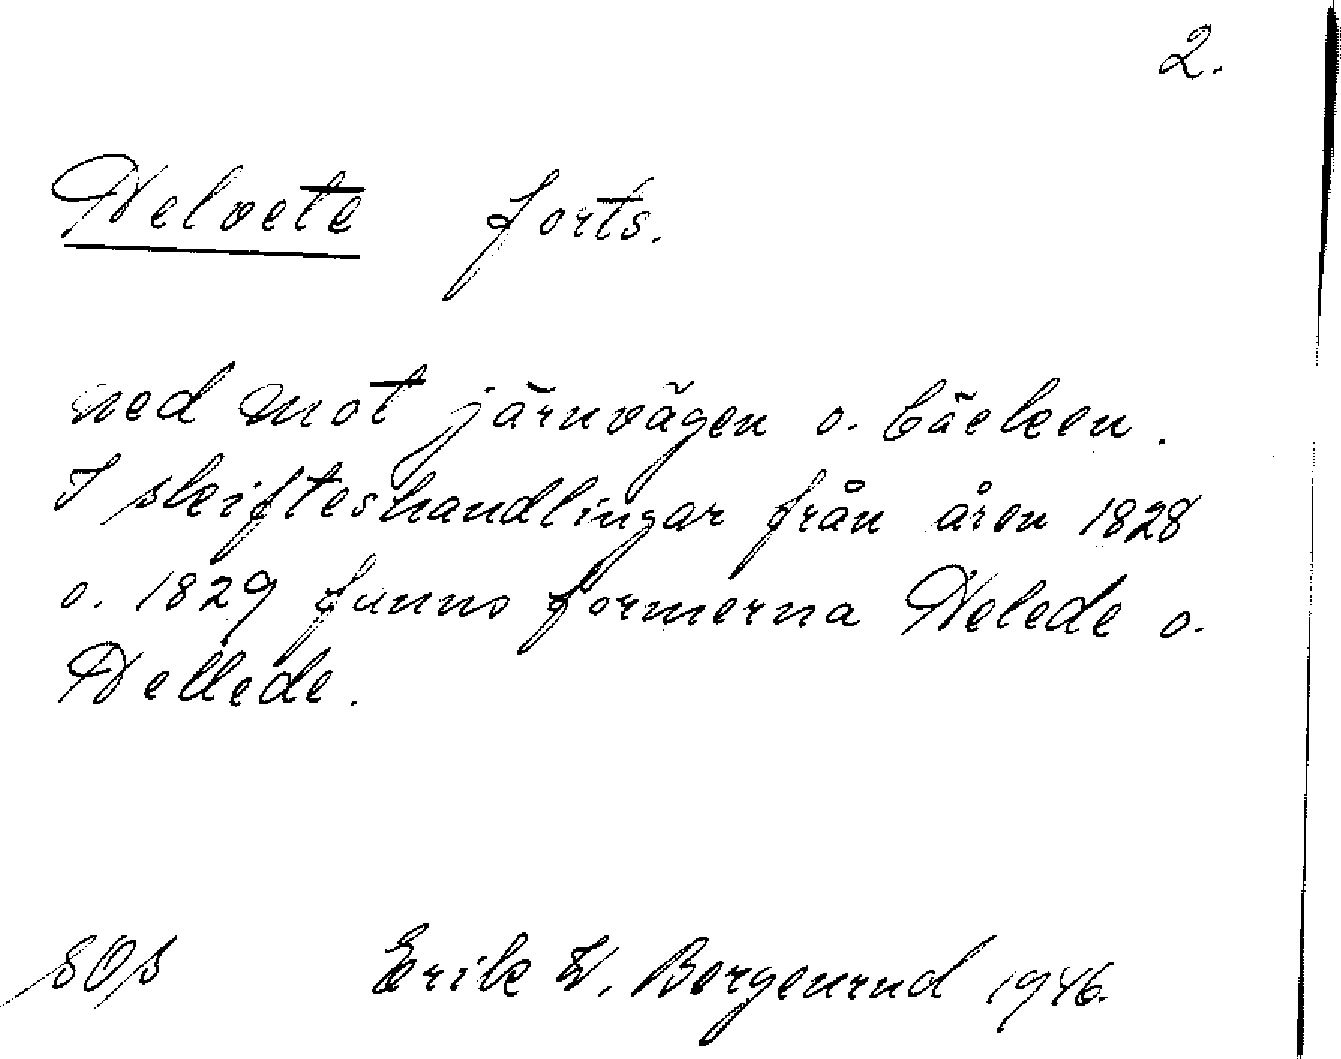 2.
Helvete forts.
ned mot järnvägen o. bäcken.
I skifteshandlingar från åren 1828
o. 1829 funns formerna Helede o.
Hellede.
SOS Erik W. Bergenrud 1946.